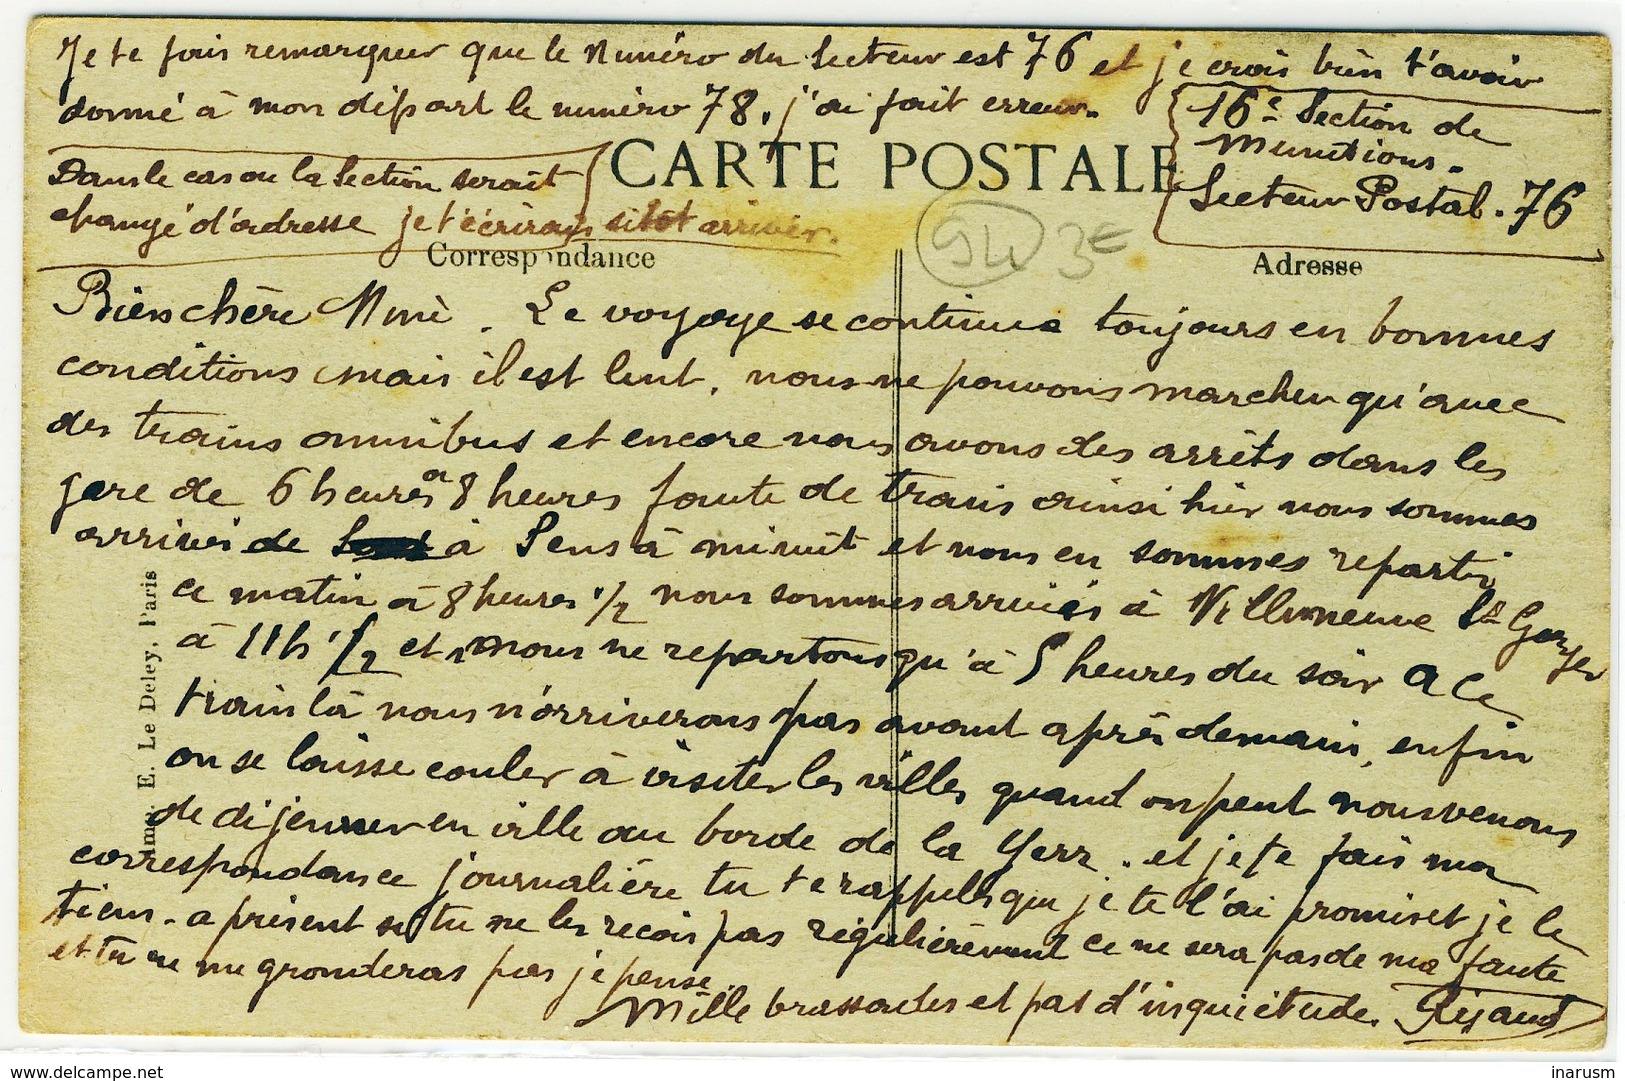 Je te fais remarquer que le Numéro du Secteur est 76 et je crois bien t'avoir
donné à mon départ le numéro 78, j'ai fait erreur.
16e Section de
Munitions.
Secteur Postal. 76
Dans le cas ou la Section serait
changé d'adresse je t'écrirais sitôt arriver.
CARTE POSTALE
94 3€
Correspondance
Adresse
Bien chère Mimi. Le voyage se continue toujours en bonnes
conditions mais il est lent, nous ne pouvons marcher qu'avec
des trains omnibus et encore nous avons des arrêts dans les
gare de 6 heures à 8 heures faute de train ainsi hier nous sommes
arrivés de à Sens à minuit et nous en sommes reparti
ce matin à 8 heures 1/2 nous sommes arrivés à Villeneuve St Georges
à 11h 1/2 et nous ne repartons qu'à 5 heures du soir a ce
train là nous n'arriverons pas avant après demain, enfin
on se laisse couler à visiter les villes quand on peut nous venons
de déjeuner en ville au borde de la Yerr. et je te fais ma
correspondance journalière tu te rappelles que je te l'ai promis et je le
tiens. a présent si tu ne les reçois pas régulièrement ce ne sera pas de ma faute
et tu ne me gronderas pas je pense.
Mille brassades et pas d'inquiétude. Rigaud
Imp. E. Le Deley, Paris
delcampe.net
inarusm